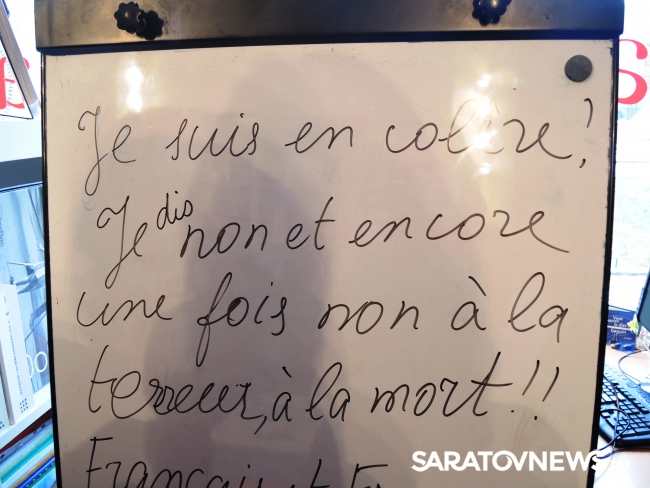 Je suis en colère!
Je dis non et encore
une fois non à la
terreur, à la mort!!
SARATOVNEWS